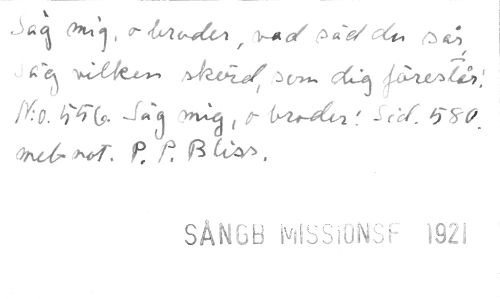 Säg mig, o broder, vad säd du sår,
säg vilken skörd, som dig förestår!
N:o. 556. Säg mig, o broder! Sid. 580.
mel-not. P. P. Bliss.
SÅNGB MISSIONSF 1921